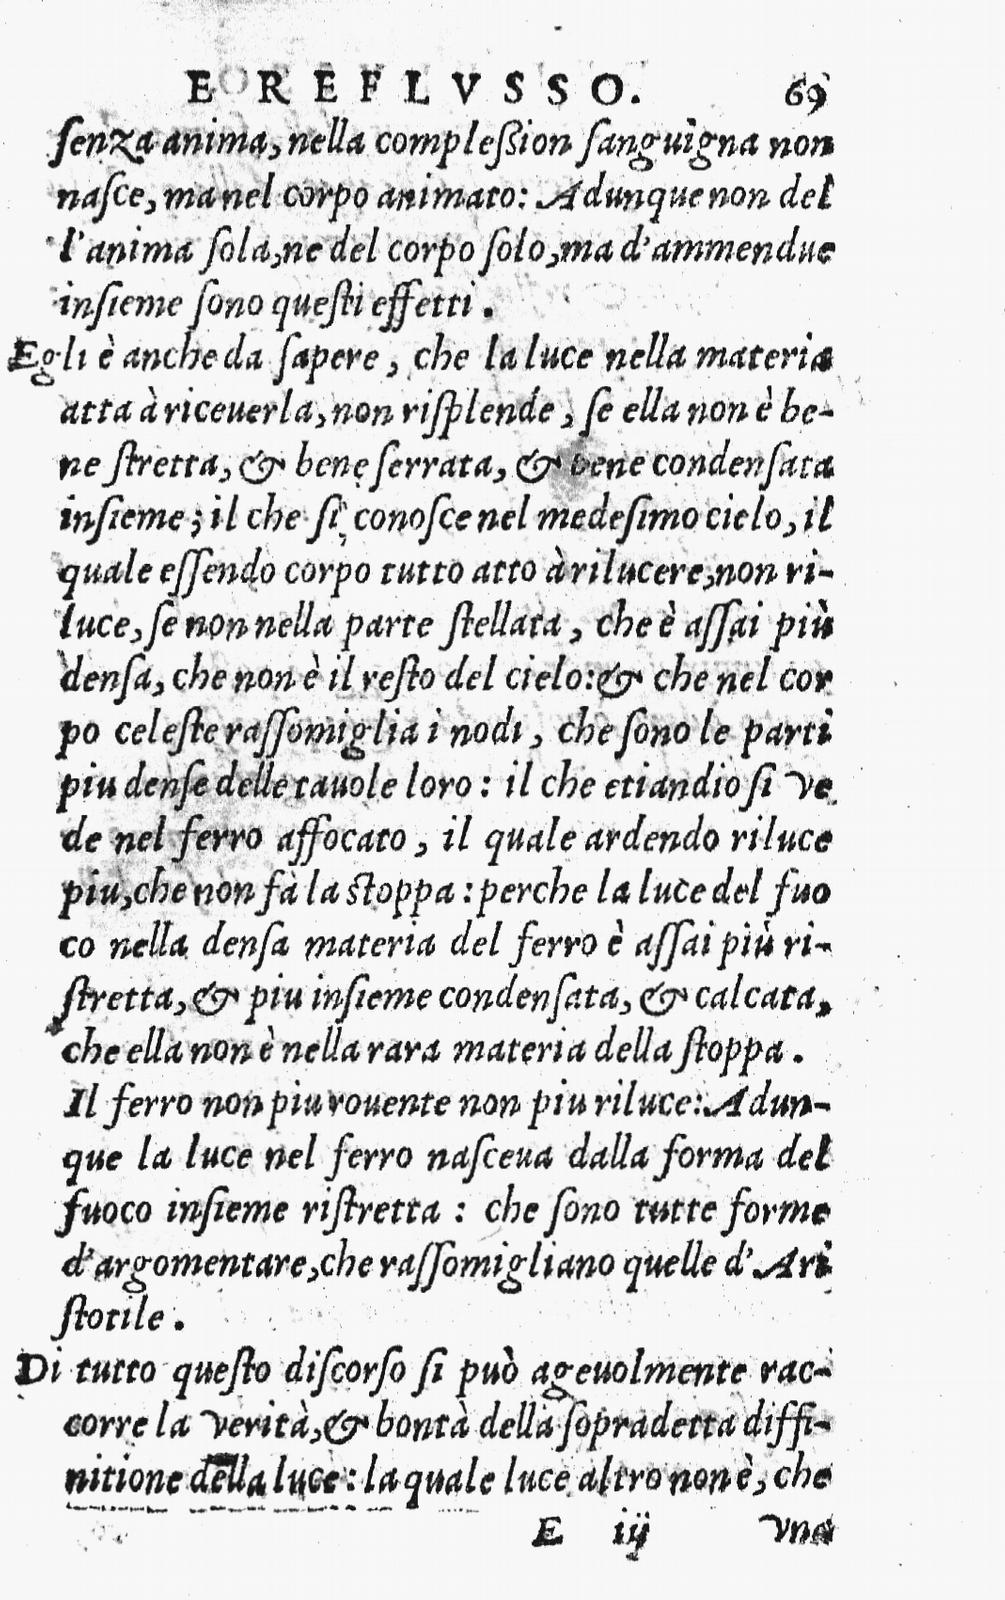 E REFLVSSO. 69
ſenza anima, nella compleßion ſanguigna non
naſce, ma nel corpo animato: Adunque non del
l'anima ſola, ne del corpo ſolo, ma d'ammendue
inſieme ſono queſti effetti.
Egli è anche da ſapere, che la luce nella materia
atta à riceuerla, non riſplende, ſe ella non è be-
ne ſtretta, & bene ſerrata, & bene condenſata
inſieme; il che ſi conoſce nel medeſimo cielo, il
quale eſſendo corpo tutto atto à rilucere, non ri-
luce, ſe non nella parte ſtellata, che è aſſai più
denſa, che non è il reſto del cielo: & che nel cor
po celeſte raſſomiglia i nodi, che ſono le parti
piu denſe delle tauole loro: il che etiandio ſi ve
de nel ferro affocato, il quale ardendo riluce
piu, che non fà la ſtoppa: perche la luce del fuo
co nella denſa materia del ferro è aſſai più ri-
ſtretta, & piu inſieme condenſata, & calcata,
che ella non è nella rara materia della ſtoppa.
Il ferro non piu rouente non piu riluce: Adun-
que la luce nel ferro naſceua dalla forma del
fuoco inſieme riſtretta: che ſono tutte forme
d'argomentare, che raſſomigliano quelle d'Ari
ſtotile.
Di tutto queſto diſcorſo ſi può ageuolmente rac-
corre la verità, & bontà della ſopradetta diffi-
nitione della luce: la quale luce altro non è, che
E iij vna